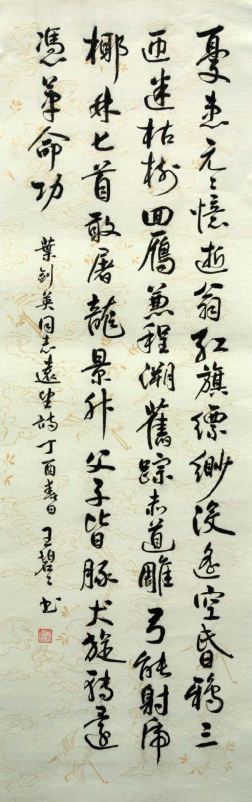 憂患元〻憶逝翁红旗縹緲没遥空昏鴉三
匝迷枯樹囬鴈兼程溯舊踪赤道雕弓能射虎
椰林匕首敢屠龍景升父子皆豚犬旋轉還
憑革命功
葉劍英同志遠望詩丁酉春日王碧〻书